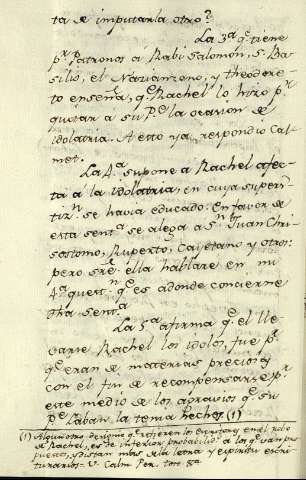 ta de imputarla otro?
La 3ª qᵉ tiene
pʳ Patronos á Rabi Salomón, S. Ba-
silio, el Nazianzeno, y Theodore-
to enseña, qᵉ Rachel lo hizo pʳ
quitar a su Pᵉ la ocasion de
idolatria. A esto ya respondio Cal-
met.
La 4ª supone a Rachel afec-
ta á la idolatria, en cuya supers-
tizⁿ se havia educado. En favor de
esta sentª se alega a Sⁿ Juan Chri-
sostomo, Ruperto, Cayetano y otros:
pero sʳᵉ ella hablare en mi
4ª questⁿ qᵉ es adonde concierne
dha sentª.
La 5ª afirma qᵉ el lle-
varse Rachel los idolos, fue pʳ
qᵉ eran de materias preciosas
con el fin de recompensarse pʳ
este medio de los agravios qᵉ su
Pᵉ Laban la tenia hechos. (1)
(1) Algun otro designio qᵉ refieren los Escritores en el robo
de Rachel, es de inferior probabilidᵈ a los qᵉ van pro-
puestos, y distan mas de la letra y espiritu escri-
turarios. V. Calm.